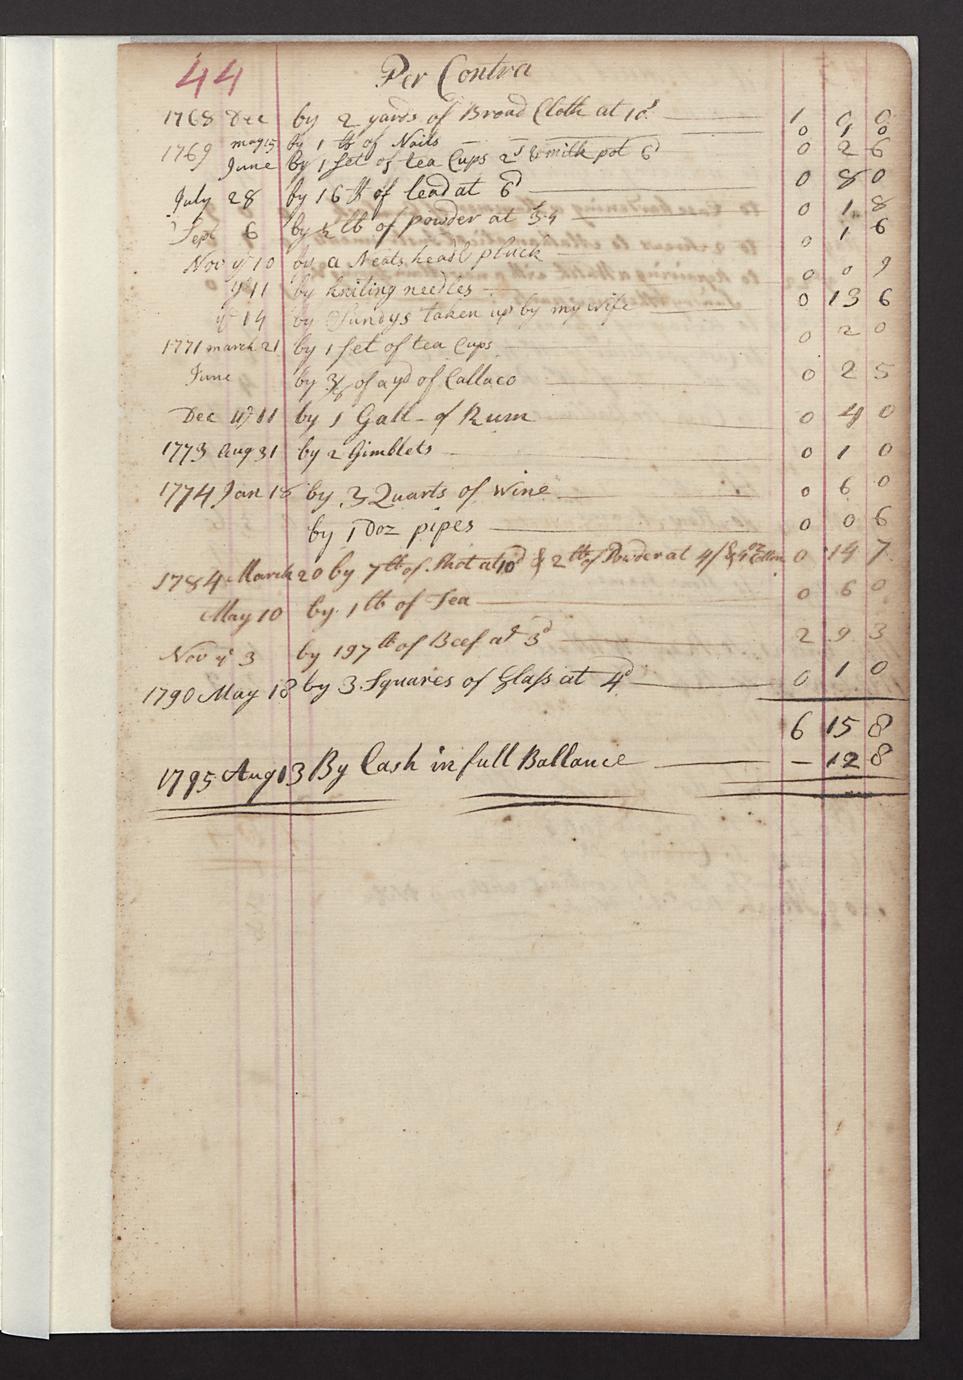 44 Per Contra
1768 Dec by 2 yards of Broad Cloth at 10s 1 0 0
1769 may 15 by 1 lb of Nails 0 1 0
June by 1 set of tea Cups 2s & milk pot 6d 0 2 6
July 28 by 16 lb of lead at 6d 0 8 0
Sept 6 by ½ lb of powder at 3-4 0 1 8
Nov ye 10 by a Neats head & pluck 0 1 6
ye 11 by kniting needles 0 0 9
ye 14 by Sundys taken up by my wife 0 13 6
1771 march 21 by 1 set of tea Cups 0 2 0
June by of a yd of Callaco 0 2 5
Dec ye 11 by 1 Gall- of Rum 0 4 0
1773 Aug 31 by 2 Gimblets 0 1 0
1774 Jan 18 by 3 Quarts of wine 0 6 0
by 1 Doz pipes 0 0 6
1784 March 20 by 7 lb of Shot at 10d & 2 lb of Powder at 4/ & 0 14 7
May 10 by 1 lb of Tea 0 6 0
Nov ye 3 by 197 lb of Beef at 3d 2 9 3
1790 May 18 by 3 Squares of Glass at 4d 0 1 0
6 15 8
1795 Aug 13 By Cash in full Ballance – 12 8